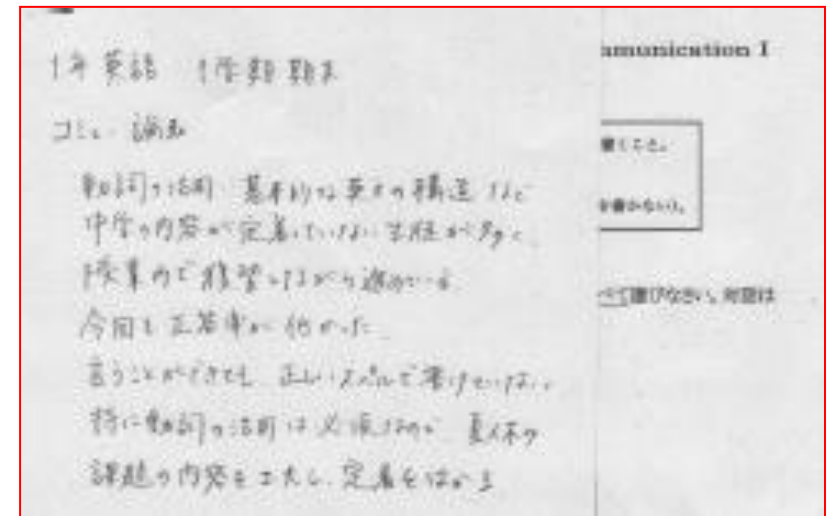 1年英語 1学期期末
コミュ・論表
動詞の活用、基本的な英文の構造など
中学の内容が定着していない生徒が多く
授業内で復習しながら進めている
今回も正答率が低かった
言うことができても、正しいスペルで書けていない
特に動詞の活用は必須なので、夏休みの
課題の内容を工夫し、定着をはかる
mmunication I
書くこと。
を書かない)。
べて選びなさい。対話は